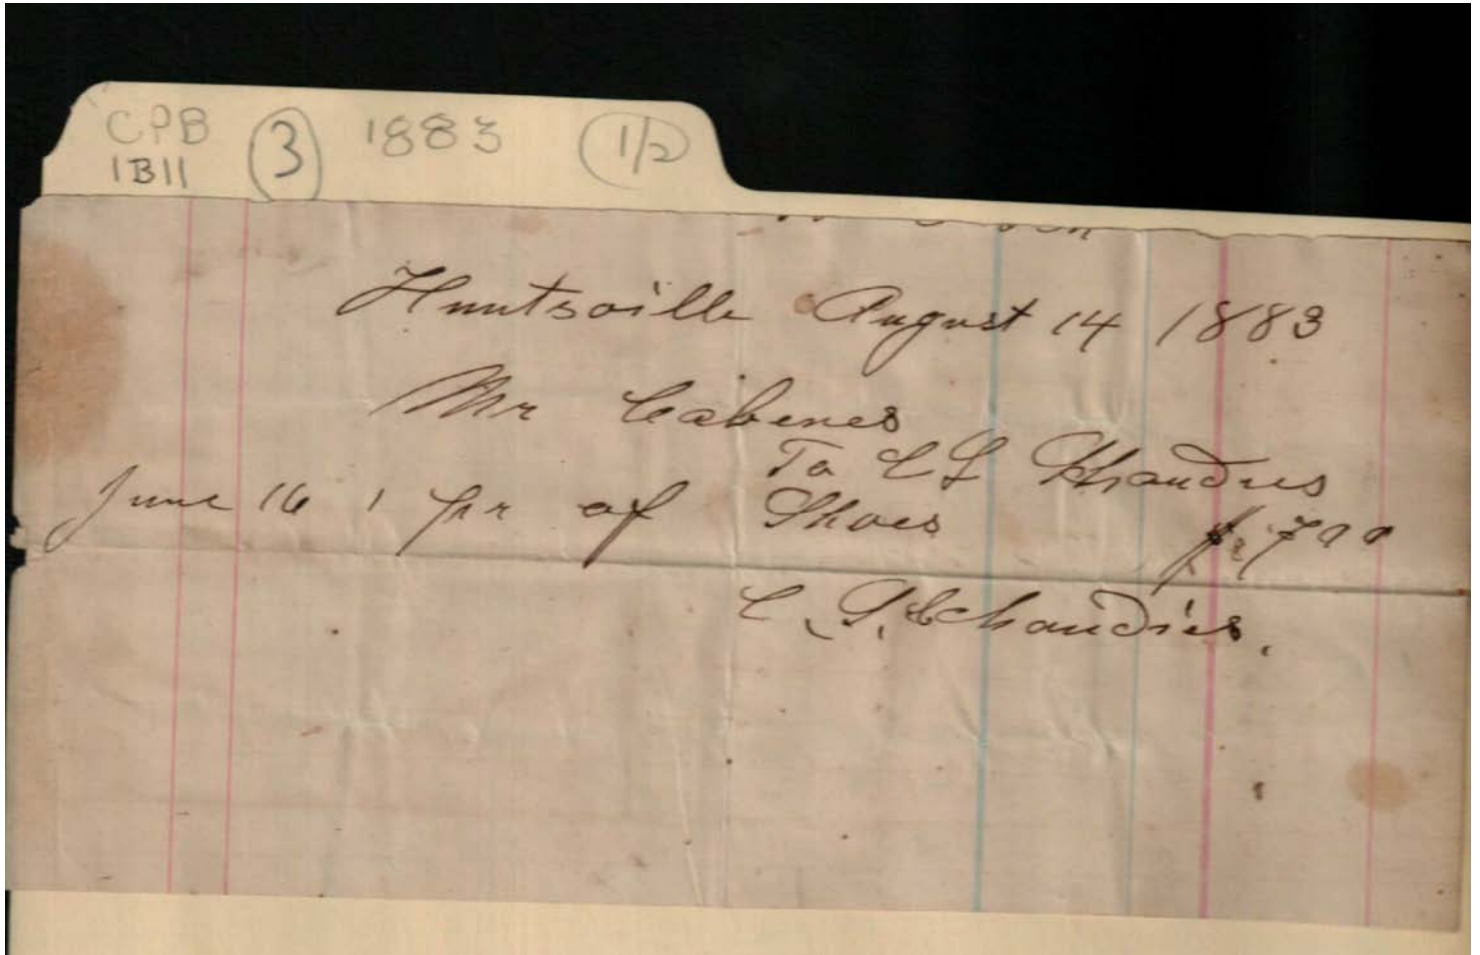 CPB 3 1883 1/2
1B11
Huntsville August 14 1883
Mr Cabenes
To C G Schaudies
June 16 1 pr of Shoes $ 700
C. G. Schaudies.